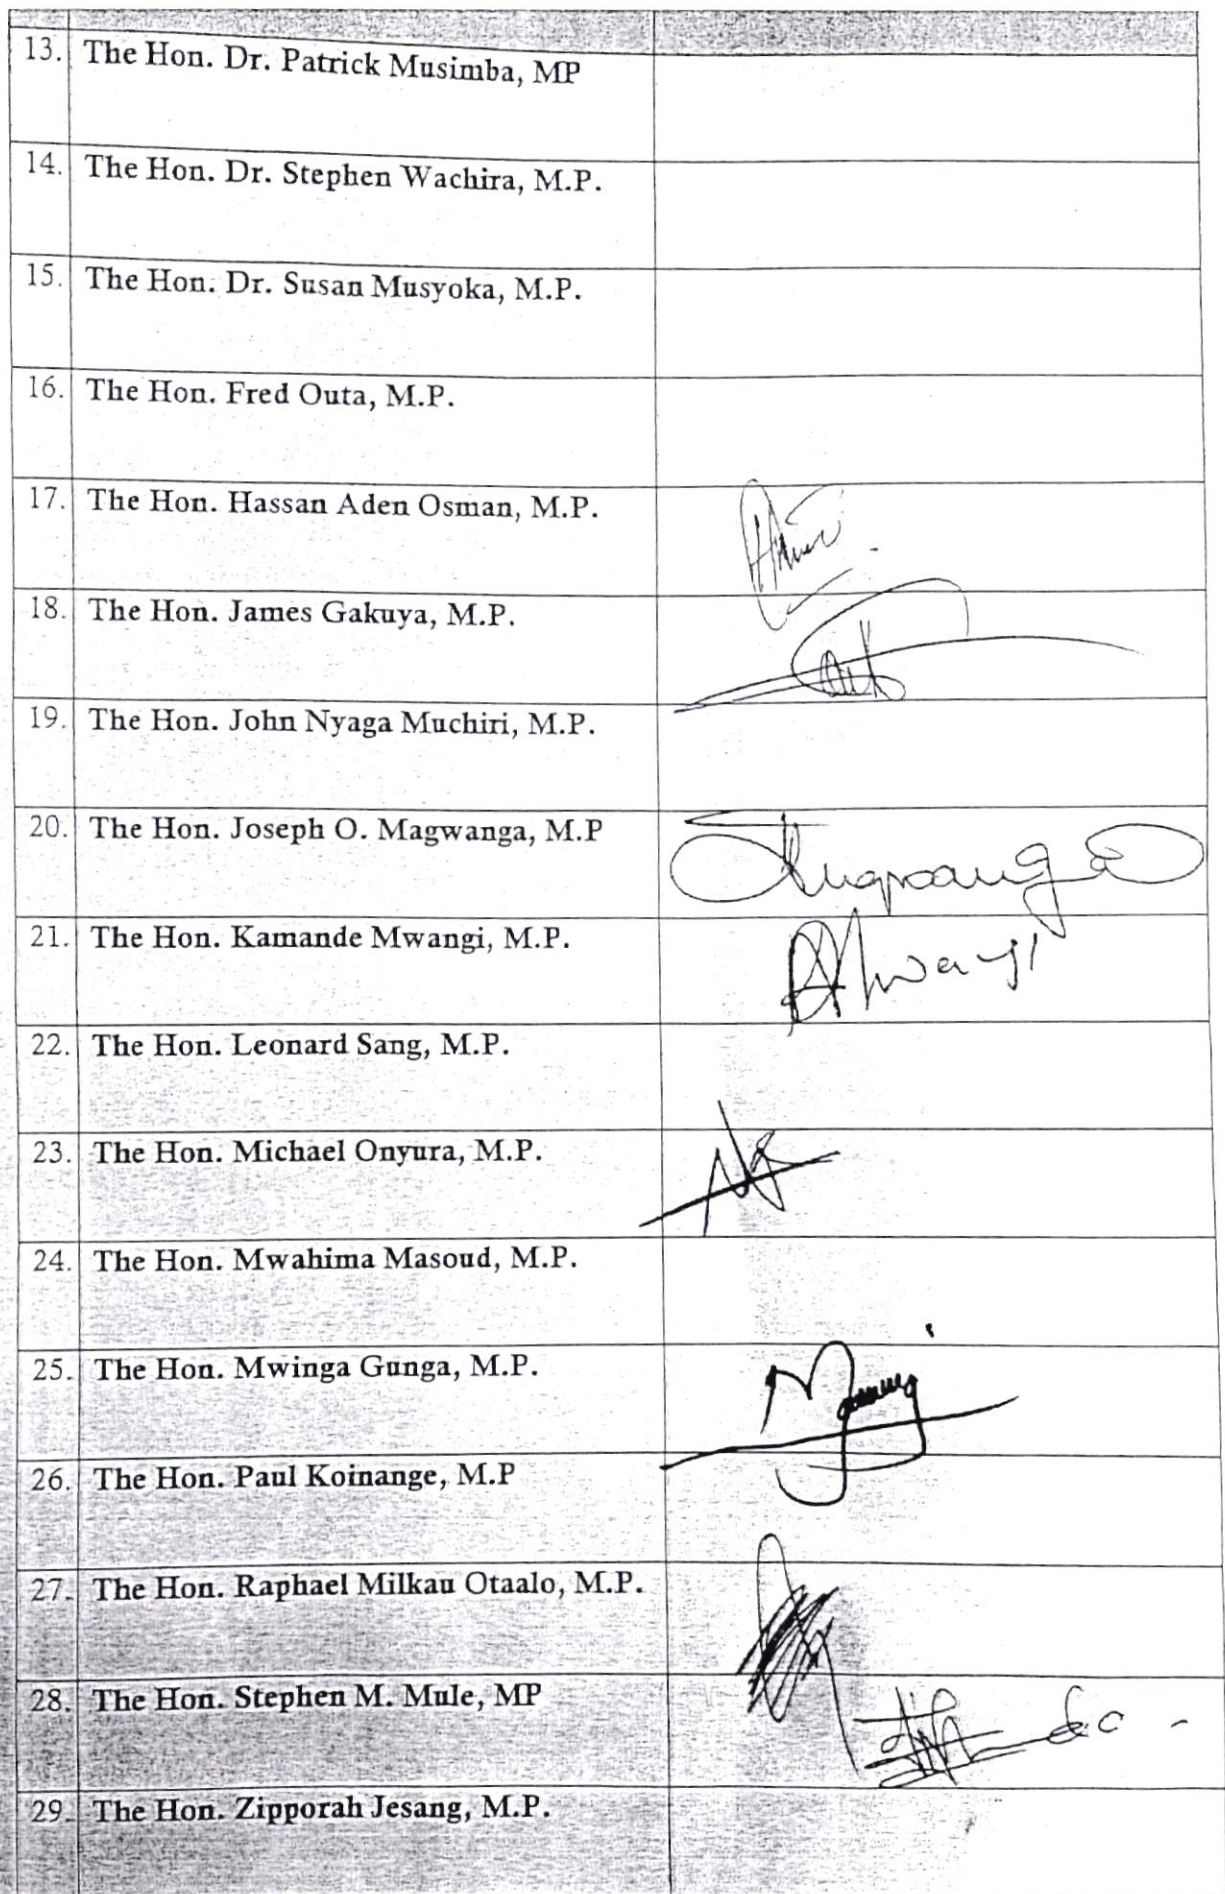 13. The Hon. Dr. Patrick Musimba, MP
14. The Hon. Dr. Stephen Wachira, M.P.
15. The Hon. Dr. Susan Musyoka, M.P.
16. The Hon. Fred Outa, M.P.
17. The Hon. Hassan Aden Osman, M.P.
18. The Hon. James Gakuya, M.P.
19. The Hon. John Nyaga Muchiri, M.P.
20. The Hon. Joseph O. Magwanga, M.P
21. The Hon. Kamande Mwangi, M.P.
22. The Hon. Leonard Sang, M.P.
23. The Hon. Michael Onyura, M.P.
24. The Hon. Mwahima Masoud, M.P.
25. The Hon. Mwinga Gunga, M.P.
26. The Hon. Paul Koinange, M.P
27. The Hon. Raphael Milkau Otaalo, M.P.
28. The Hon. Stephen M. Mule, MP
29. The Hon. Zipporah Jesang, M.P.